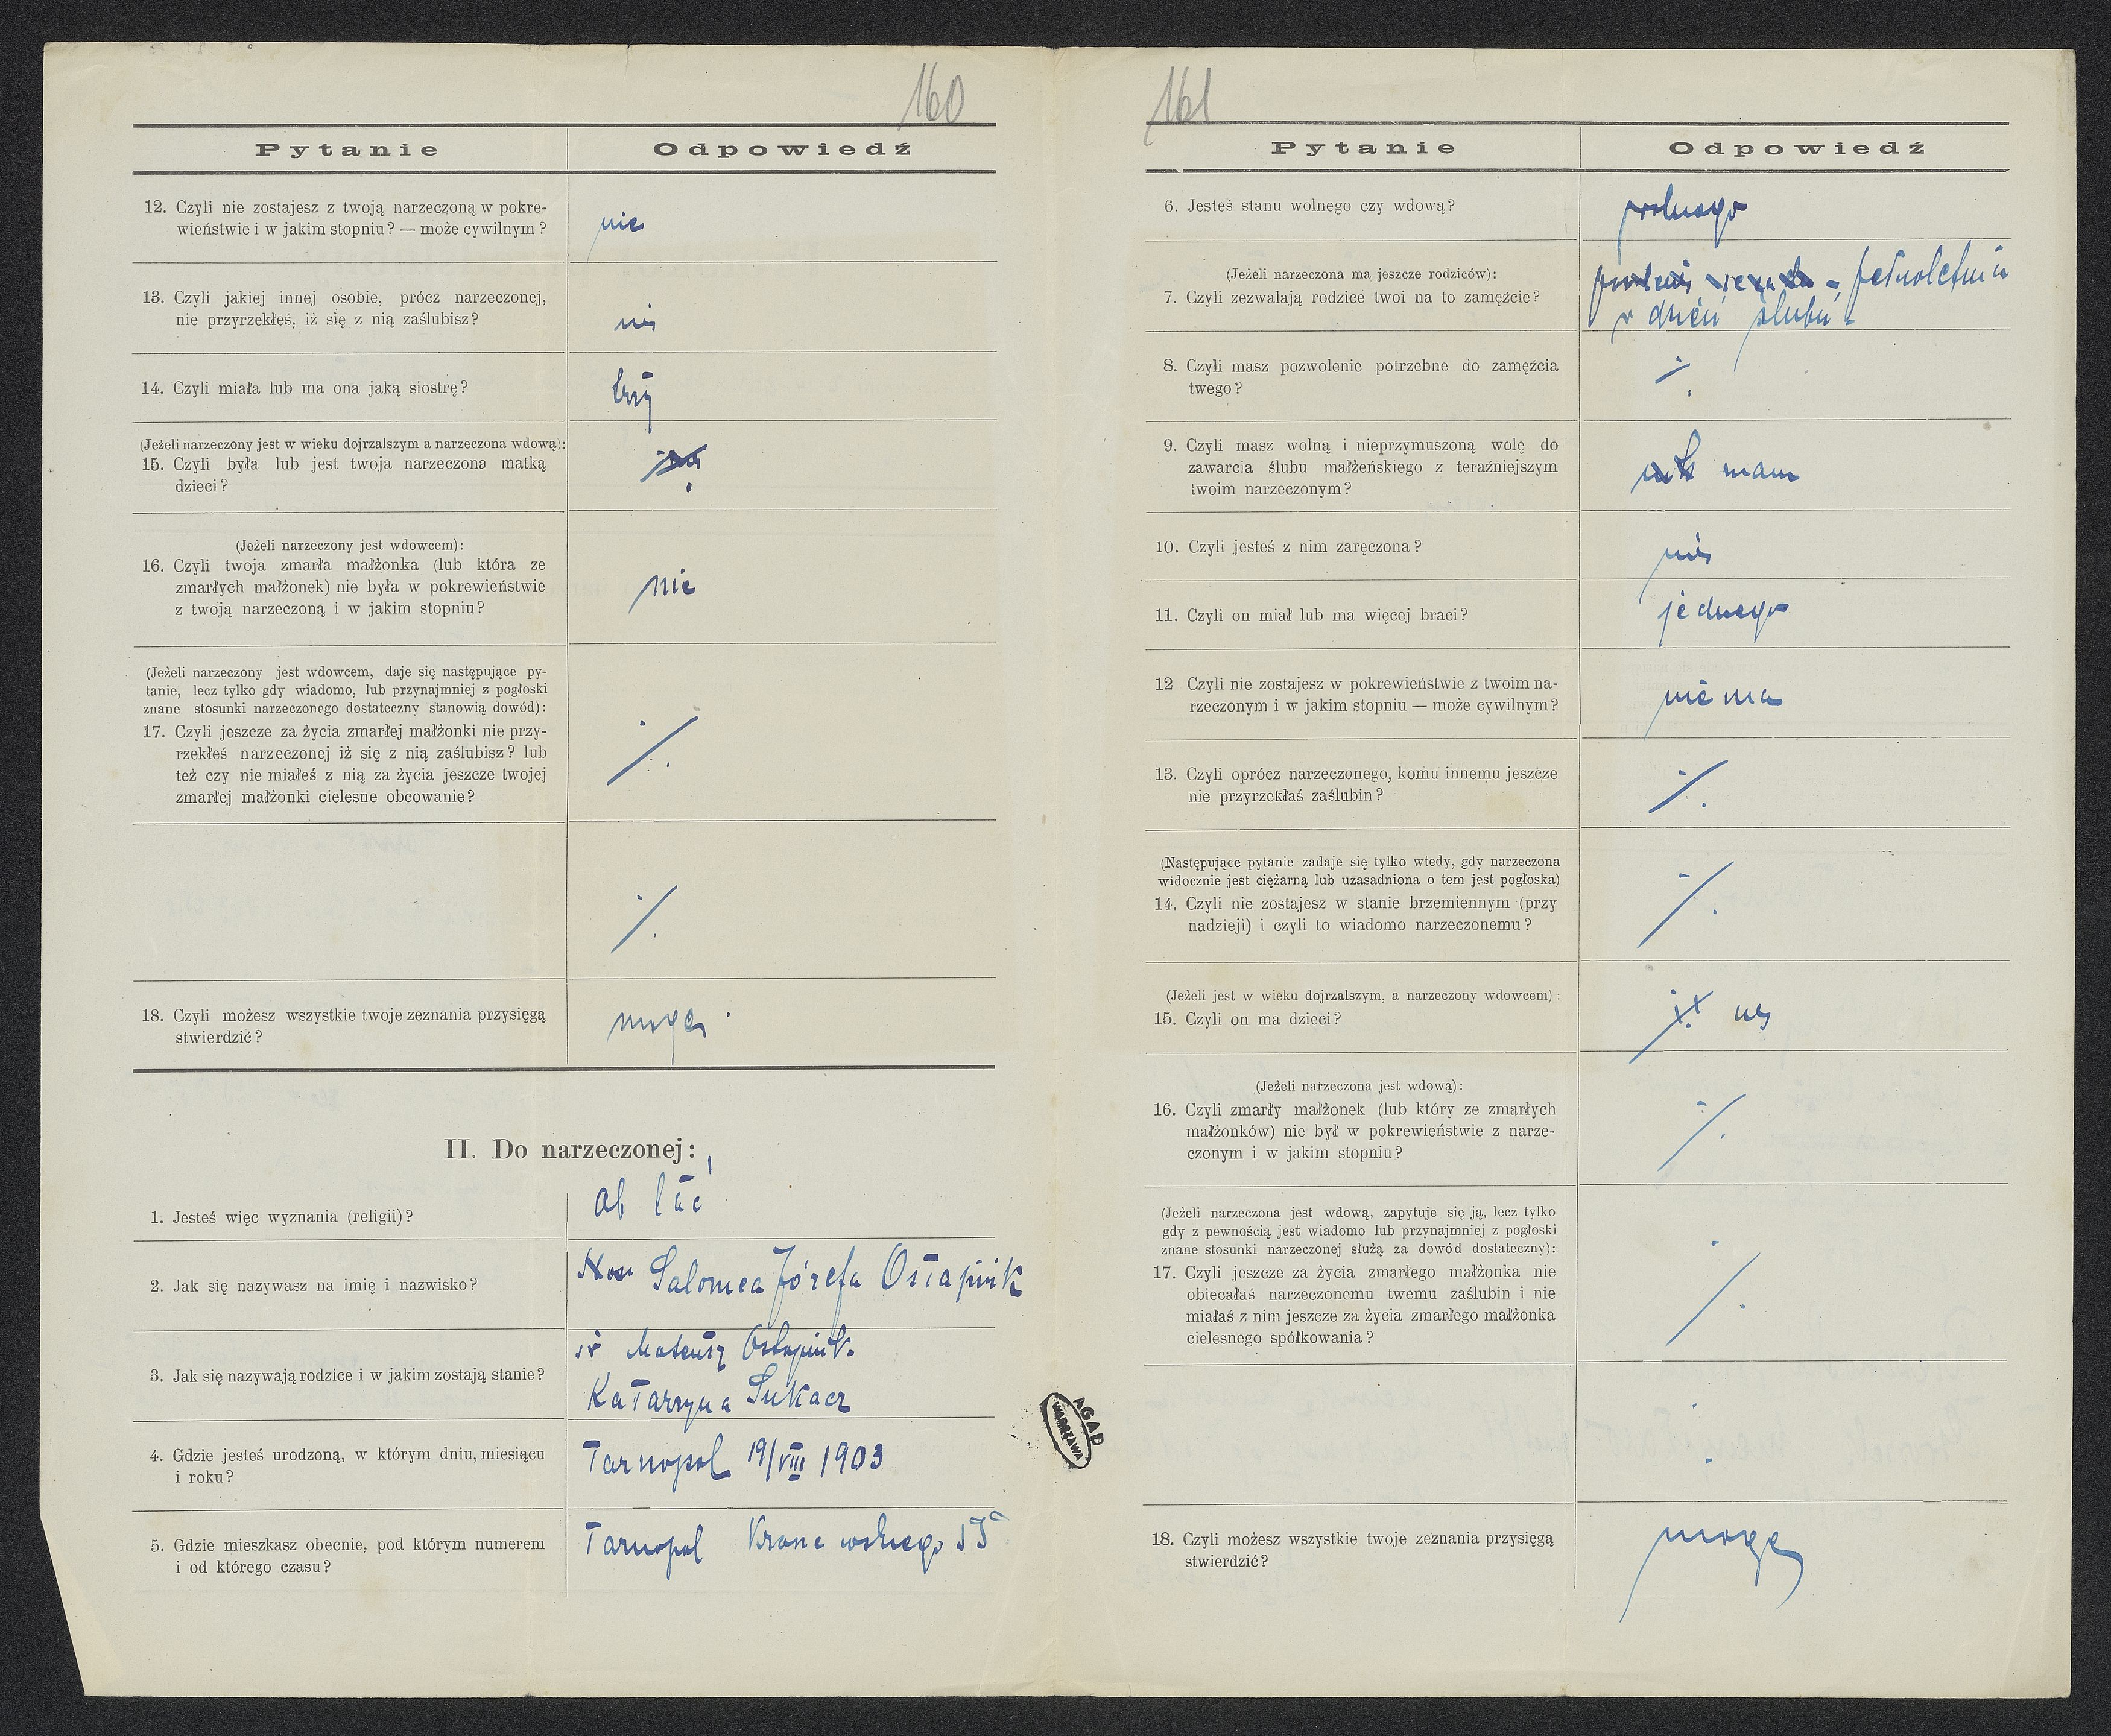 160
Pytanie Odpowiedź
12. Czyli nie zostajesz z twoją narzeczoną w pokre-
wieństwie i w jakim stopniu? — może cywilnym?
nie
13. Czyli jakiej innej osobie, prócz narzeczonej,
nie przyrzekłeś, iż się z nią zaślubisz?
nie
14. Czyli miała lub ma ona jaką siostrę?
trzy
(Jeżeli narzeczony jest w wieku dojrzalszym a narzeczona wdową):
15. Czyli była lub jest twoja narzeczona matką
dzieci?
(Jeżeli narzeczony jest wdowcem):
16. Czyli twoja zmarła małżonka (lub która ze
zmarłych małżonek) nie była w pokrewieństwie
z twoją narzeczoną i w jakim stopniu?
nie
(Jeżeli narzeczony jest wdowcem, daje się następujące py-
tanie, lecz tylko gdy wiadomo, lub przynajmniej z pogłoski
znane stosunki narzeczonego dostateczny stanowią dowód):
17. Czyli jeszcze za życia zmarłej małżonki nie przy-
rzekłeś narzeczonej iż się z nią zaślubisz? lub
też czy nie miałeś z nią za życia jeszcze twojej
zmarłej małżonki cielesne obcowanie?
./.
./.
18. Czyli możesz wszystkie twoje zeznania przysięgą
stwierdzić?
mogę
II. Do narzeczonej:
1. Jesteś więc wyznania (religii)?
ob łać
2. Jak się nazywasz na imię i nazwisko?
Salomea Józefa Ostapiuk
3. Jak się nazywają rodzice i w jakim zostają stanie?
Mateusz Ostapiuk.
Katarzyna Sukacz
4. Gdzie jesteś urodzoną, w którym dniu, miesiącu
i roku?
Tarnopol 19/VIII 1903
5. Gdzie mieszkasz obecnie, pod którym numerem
i od którego czasu?
Tarnopol
161
Pytanie Odpowiedź
6. Jesteś stanu wolnego czy wdową?
wolnego
(Jeżeli narzeczona ma jeszcze rodziców):
7. Czyli zezwalają rodzice twoi na to zamęźcie?
pełnoletnia
w dzień ślubu
8. Czyli masz pozwolenie potrzebne do zamęźcia
twego?
./.
9. Czyli masz wolną i nieprzymuszoną wolę do
zawarcia ślubu małżeńskiego z teraźniejszym
twoim narzeczonym?
mam
10. Czyli jesteś z nim zaręczona?
nie
11. Czyli on miał lub ma więcej braci?
jednego
12 Czyli nie zostajesz w pokrewieństwie z twoim na-
rzeczonym i w jakim stopniu — może cywilnym?
nie ma
13. Czyli oprócz narzeczonego, komu innemu jeszcze
nie przyrzekłaś zaślubin?
./.
(Następujące pytanie zadaje się tylko wtedy, gdy narzeczona
widocznie jest ciężarną lub uzasadniona o tem jest pogłoska)
14. Czyli nie zostajesz w stanie brzemiennym (przy
nadzieji) i czyli to wiadomo narzeczonemu?
./.
(Jeżeli jest w wieku dojrzalszym, a narzeczony wdowcem):
15. Czyli on ma dzieci?
(Jeżeli narzeczona jest wdową):
16. Czyli zmarły małżonek (lub który ze zmarłych
małżonków) nie był w pokrewieństwie z narze-
czonym i w jakim stopniu?
./.
(Jeżeli narzeczona jest wdową, zapytuje się ją, lecz tylko
gdy z pewnością jest wiadomo lub przynajmniej z pogłoski
znane stosunki narzeczonej służą za dowód dostateczny):
17. Czyli jeszcze za życia zmarłego małżonka nie
obiecałaś narzeczonemu twemu zaślubin i nie
miałaś z nim jeszcze za życia zmarłego małżonka
cielesnego spółkowania?
./.
18. Czyli możesz wszystkie twoje zeznania przysięgą
stwierdzić?
mogę
AGAD
WARSZAWA